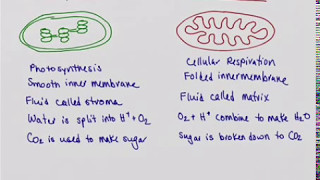 Photosynthesis
Smooth inner membrane
Fluid called stroma
Water is split into H⁺ + O₂
CO₂ is used to make sugar
Cellular Respiration
Folded inner membrane
Fluid called matrix
O₂ + H⁺ combine to make H₂O
Sugar is broken down to CO₂